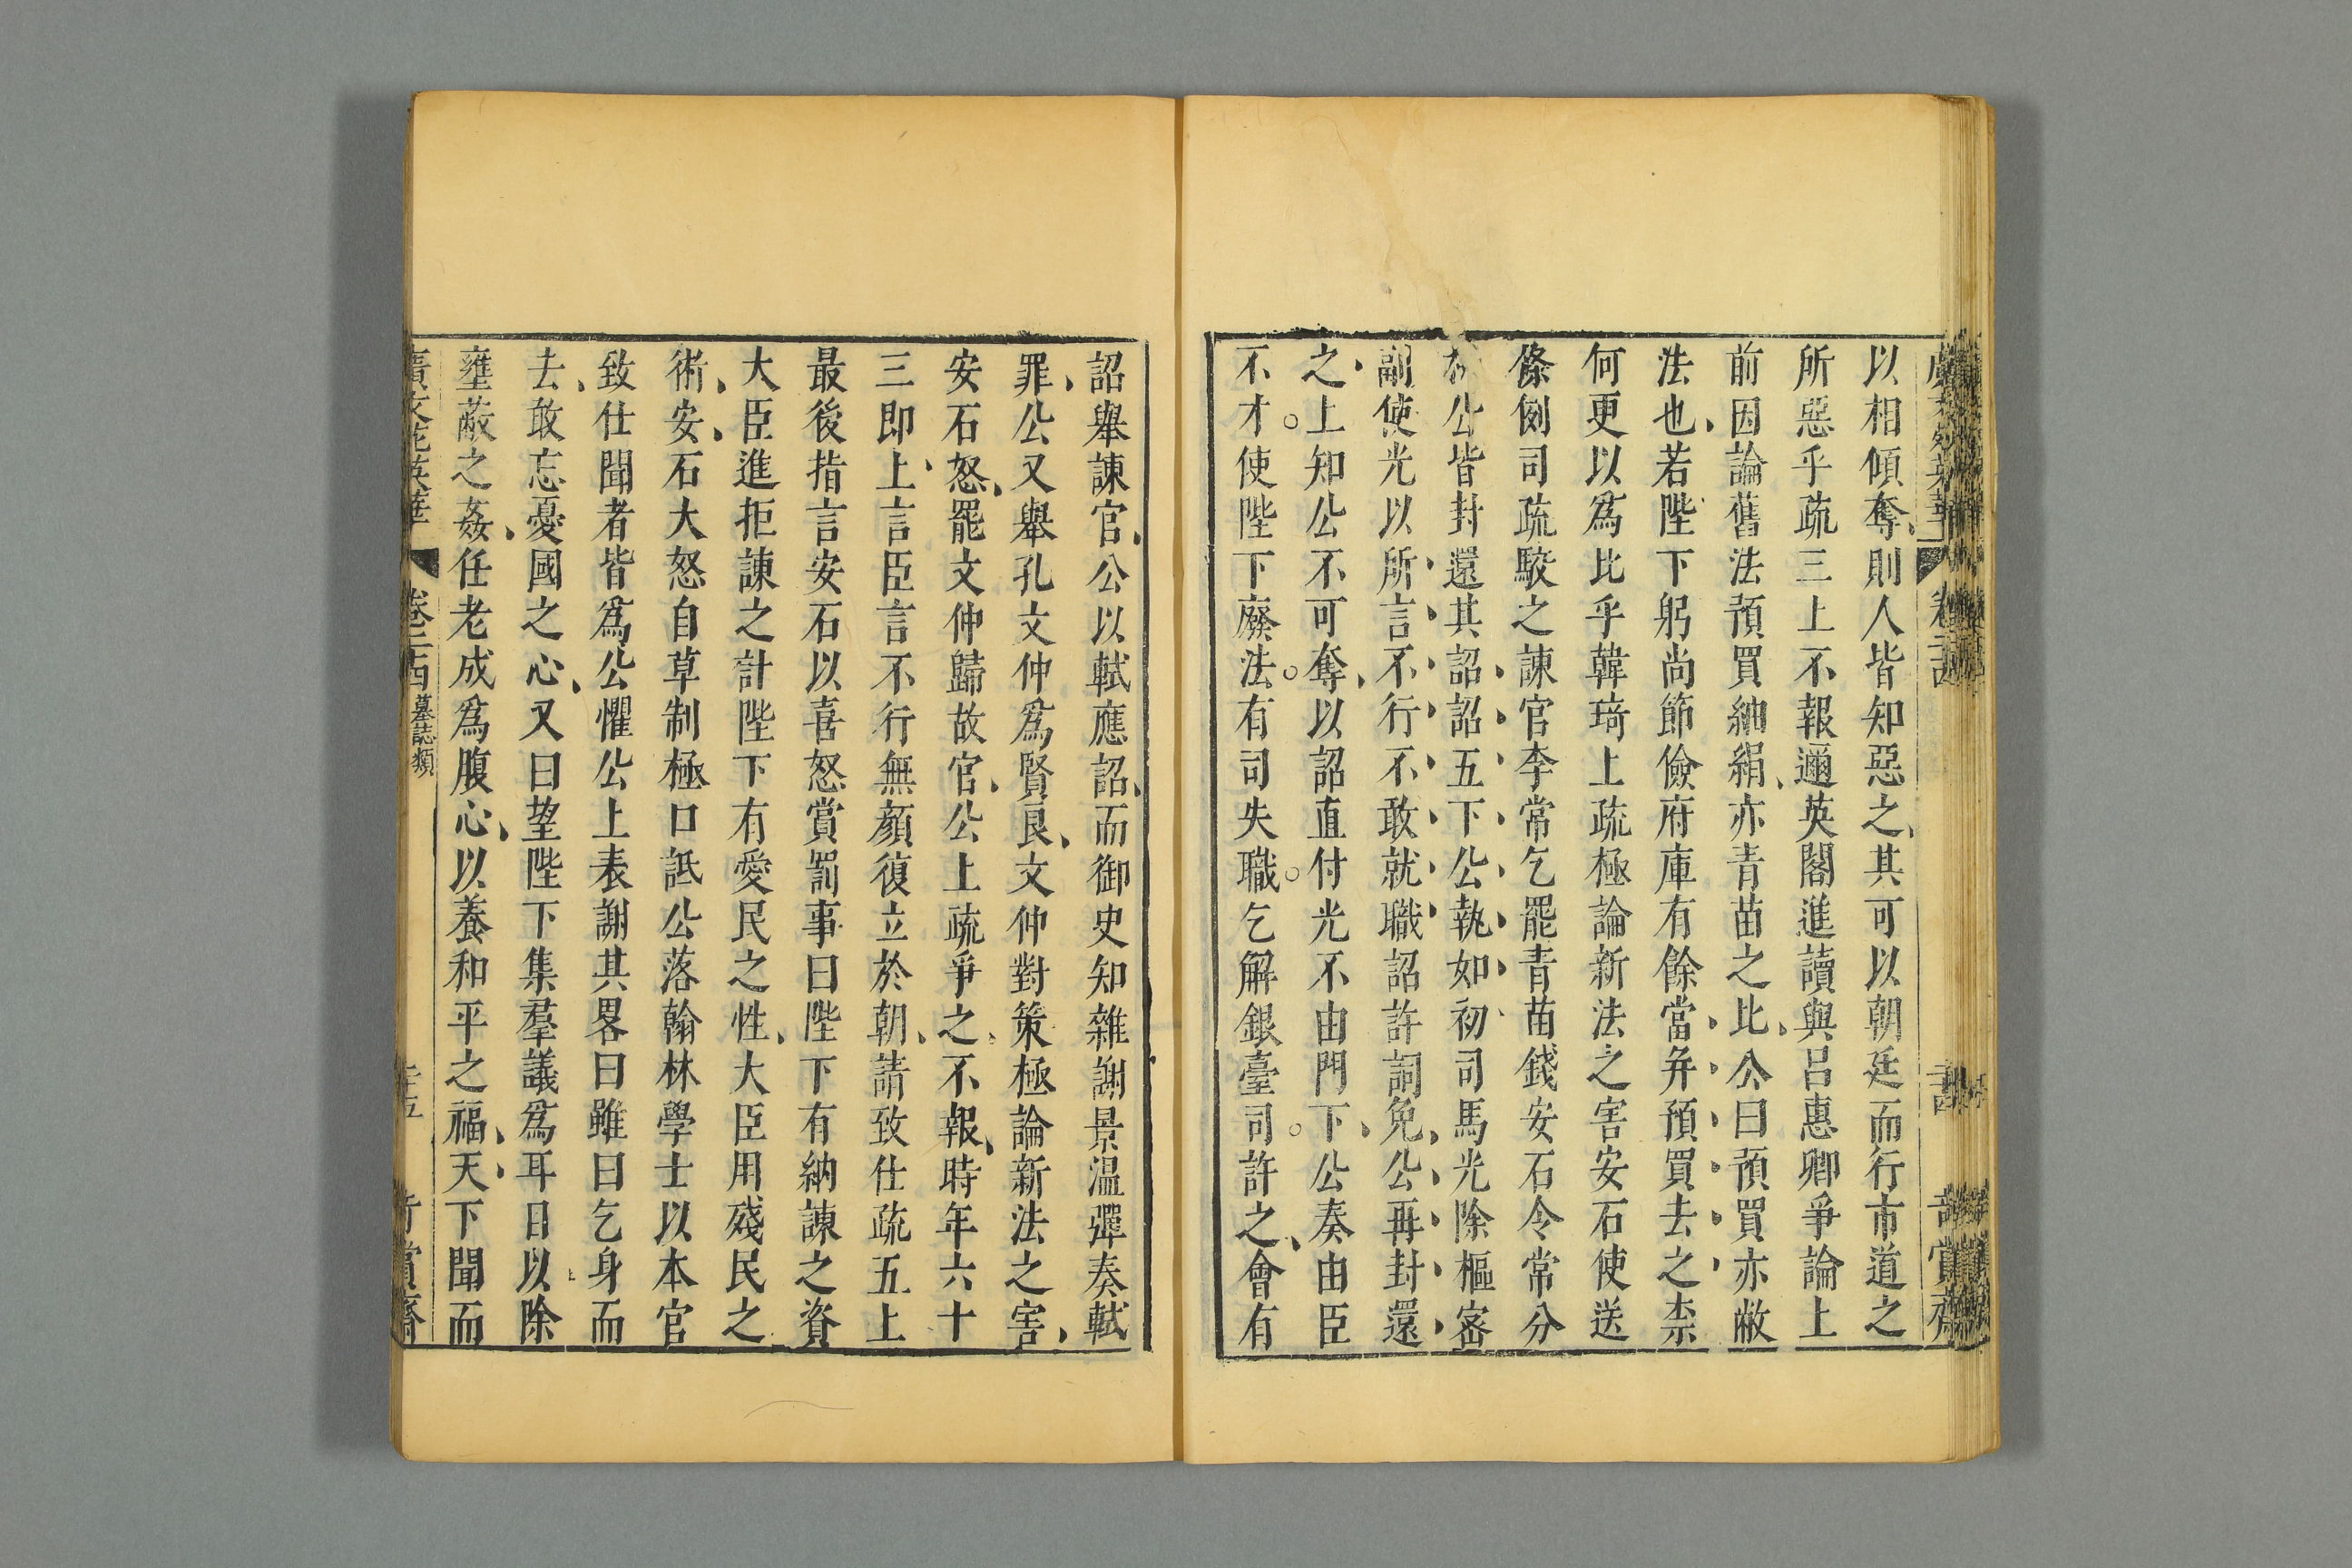 以相傾奪則人皆知惡之其可以朝廷而行市道之
所惡乎疏三上不報邇英閣進讀與呂惠卿爭論上
前因論舊法預買紬絹亦青苗之比公曰預買亦敝
法也若陛下躬尚節儉府庫有餘當并預買去之柰
何更以爲比乎韓琦上疏極論新法之害安石使送
條例司疏駮之諫官李常乞罷青苗錢安石令常分
公皆封還其詔詔五下公執如初司馬光除樞密
副使光以所言不行不敢就職詔許詞免公再封還
之上知公不可奪以詔直付光不由門下公奏由臣
不才使陛下廢法有司失職乞解銀臺司許之會有
詔舉諫官公以軾應詔而御史知雜謝景溫彈奏軾
罪公又舉孔文仲爲賢良文仲對策極論新法之害
安石怒罷文仲歸故官公上疏爭之不報時年六十
三即上言臣言不行無顏復立於朝請致仕疏五上
最後指言安石以喜怒賞罰事曰陛下有納諫之資
大臣進拒諫之計陛下有愛民之性大臣用殘民之
術安石大怒自草制極口詆公落翰林學士以本官
致仕聞者皆爲公懼公上表謝其畧曰雖曰乞身而
去敢忘憂國之心又曰望陛下集羣議爲耳目以除
壅蔽之姦任老成爲腹心以養和平之福天下聞而
廣文苑英華 卷二四 墓誌類 奇賞齋